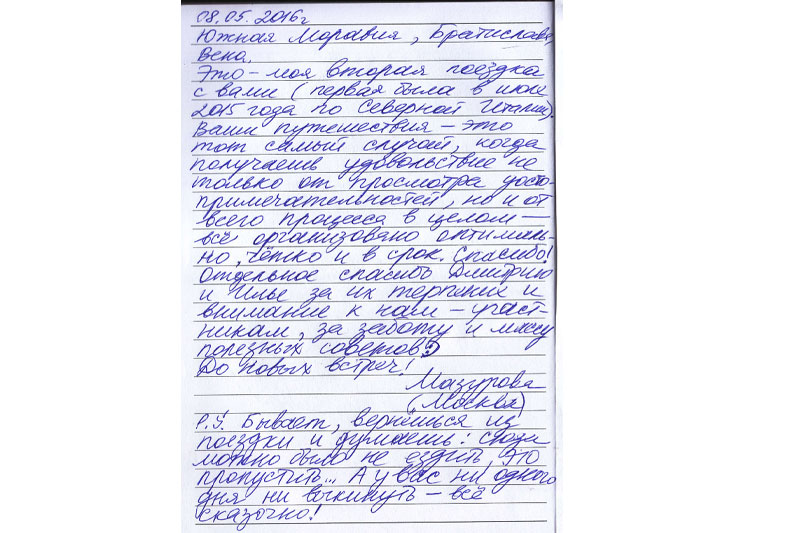 08.05.2016г
Южная Моравия, Братислава,
Вена.
Это – моя вторая поездка
с вами (первая была в июле
2015 года по Северной Италии).
Ваши путешествия – это
тот самый случай, когда
получаешь удовольствие не
только от просмотра досто-
примечательностей, но и от
всего процесса в целом –
всё организовано оптималь-
но, чётко и в срок. Спасибо!
Отдельное спасибо Дмитрию
и Илье за их терпение и
внимание к нам – участ-
никам, за заботу и массу
полезных советов :)
До новых встреч!
Мазурова
(Москва)
P.S. Бывает, вернёшься из
поездки и думаешь: сюда
можно было не ездить, это
пропустить... А у вас ни одного
дня ни выкинуть – всё
сказочно!